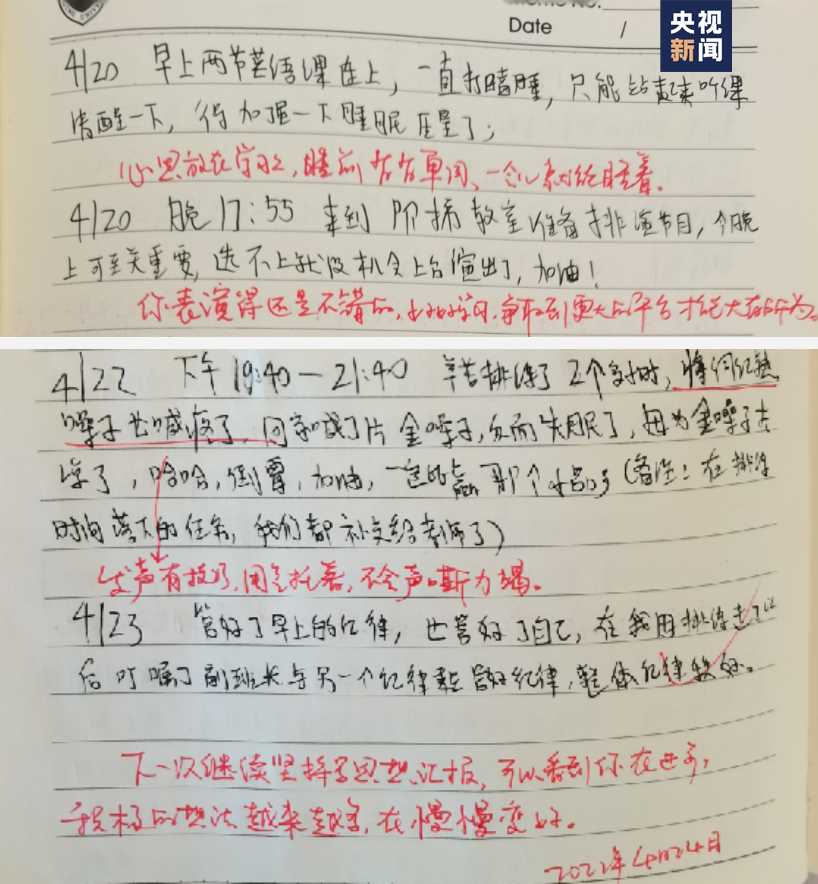 Date /
央视
新闻
4/20 早上两节英语课连上，一直打瞌睡，只能站起来听课
清醒一下，得加强一下睡眠质量了；
心思放在学习上，睡前背背单词、一会儿就能睡着。
4/20 晚17:55 来到 阶梯教室准备排演节目，今晚
上可至关重要，选不上就没机会上台演出了，加油！
你表演得还是不错的，好好学习，争取到更大的平台才能大有所为。
4/22 下午19:40—21:40 辛苦排练了2个多小时，
嗓子也喊疼了，回家吃了片金嗓子，反而失眠了，因为金嗓子太
凉了，哈哈，倒霉，加油，一定能赢那个小品的（备注：在排练
时间落下的任务，我们都补交给老师了）
发声有技巧，用气托着，不会声嘶力竭。
4/23 管好了早上的纪律，也管好了自己，在我因排练走了以
后叮嘱了副班长与另一个纪律委员管好纪律，整体纪律较好。
下一次继续坚持写思想汇报，可以看到你在进步，
积极的想法越来越多，在慢慢变好。
2022年4月24日